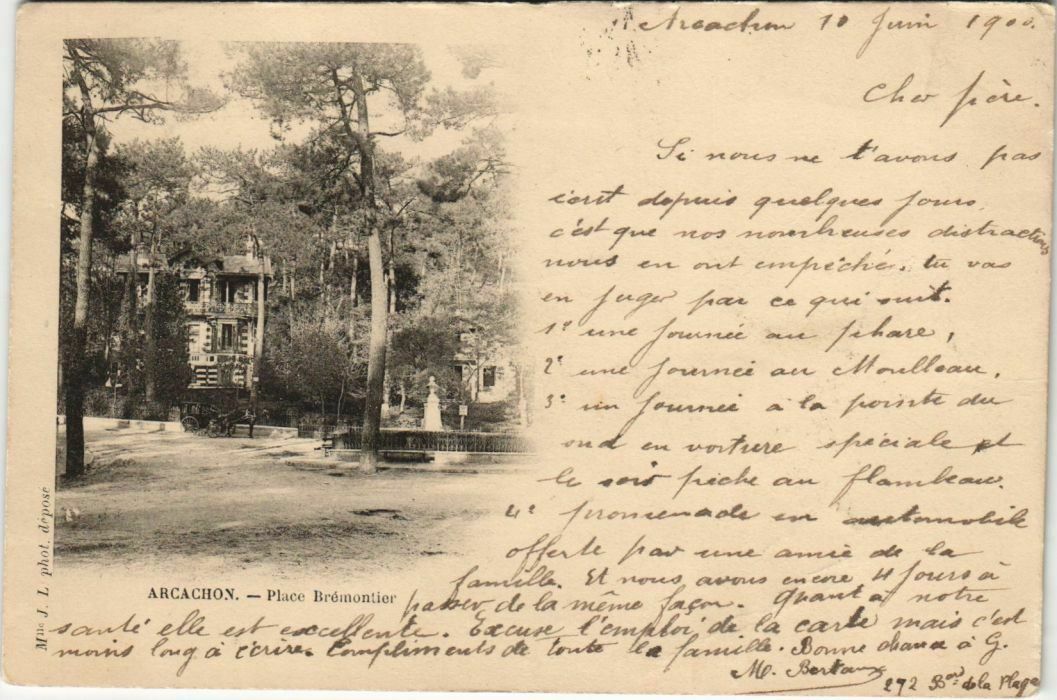 Arcachon 10 Juin 1900.
Cher frère.
Si nous ne t'avons pas
écrit depuis quelques jours,
c'est que nos nombreuses distractions
nous en ont empêché. tu vas
en juger par ce qui suit.
1º une journée au phare,
2º une journée au Moulleau,
3º un journée à la pointe du
sud en voiture spéciale et
le soir pêche au flambeau.
4º promenade en automobile
offerte par une amie de la
famille. Et nous avons encore 4 jours à
passer de la même façon. Quant à notre
santé elle est excellente. Excuse l'emploi de la carte mais c'est
moins long à écrire. Compliments de toute la famille. Bonne chance à G.
M. Bertaux
272 Bord de la Plage
ARCACHON. — Place Brémontier
Mme J. L phot. déposé